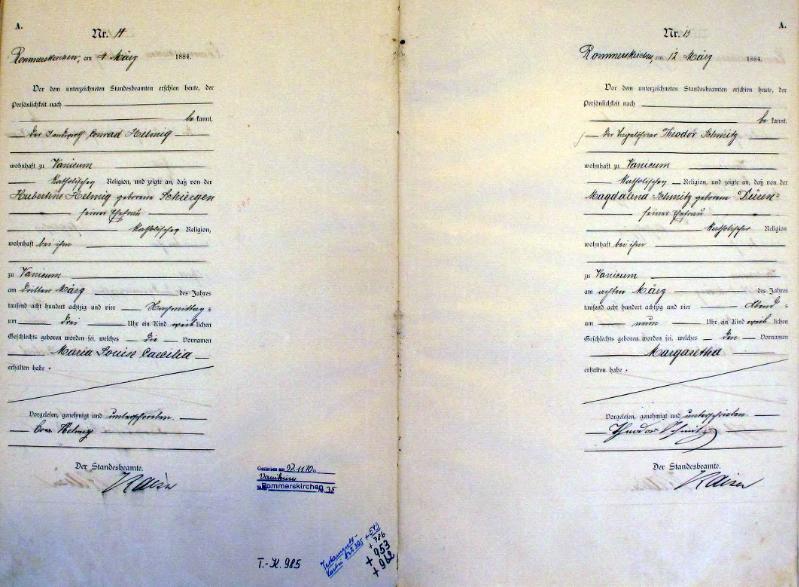 A.
Nr. 14
Rommerskirchen, am 4 März 1884.
Vor dem unterzeichneten Standesbeamten erschien heute, der
Persönlichkeit nach
be kannt,
der Conrad Helmig
wohnhaft zu Vanicum
katholischer Religion, und zeigte an, daß von der
Hubertine Helmig geborene Schiergen
seiner Ehefrau
katholischer Religion,
wohnhaft bei ihm
zu Vanicum
am dritten März des Jahres
tausend acht hundert achtzig und vier Nachmittags
um drei Uhr ein Kind weib lichen
Geschlechts geboren worden sei, welches die Vornamen
Maria Louise Caecilia
erhalten habe.
Vorgelesen, genehmigt und unterschrieben
Helmig
Der Standesbeamte.
Kaiser
Gestorben am
Vanikum
Rommerskirchen
T.-K. 985
+ 953
A.
Nr. 15
Rommerskirchen, am 12 März 1884.
Vor dem unterzeichneten Standesbeamten erschien heute, der
Persönlichkeit nach
be kannt,
der Theodor Schmitz
wohnhaft zu Vanicum
katholischer Religion, und zeigte an, daß von der
Magdalena Schmitz geborene Düren
seiner Ehefrau
katholischer Religion
wohnhaft bei ihm
zu Vanicum
am achten März des Jahres
tausend acht hundert achtzig und vier Abends
um neun Uhr ein Kind weib lichen
Geschlechts geboren worden sei, welches den Vornamen
Margaretha
erhalten habe.
Vorgelesen, genehmigt und unterschrieben
Theodor Schmitz
Der Standesbeamte.
Kaiser